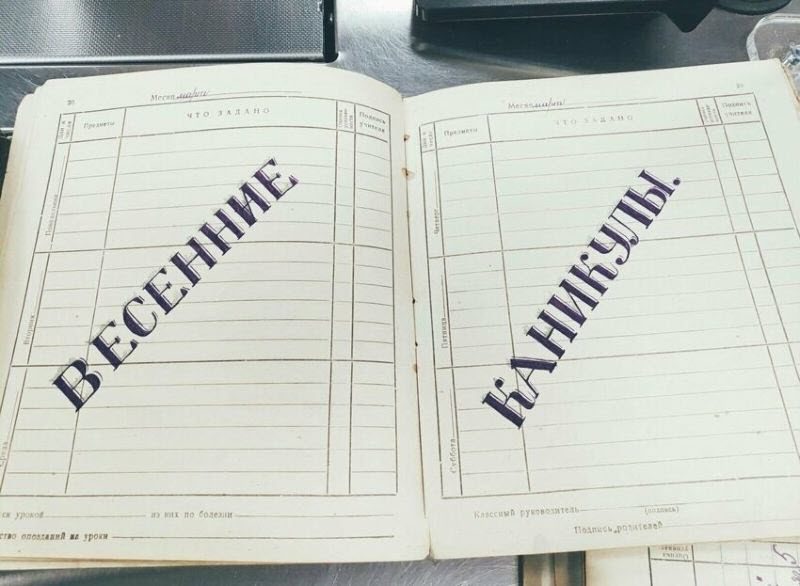 20
Месяц марта
Предметы
ЧТО ЗАДАНО
Подпись
учителя
Понедельник
Вторник
Среда
ВЕСЕННИЕ
уроков
из них по болезни
опозданий на уроки
Месяц марта
Предметы
ЧТО ЗАДАНО
Подпись
учителя
Четверг
Пятница
Суббота
КАНИКУЛЫ.
Классный руководитель
(подпись)
Подпись родителей
Оценка
5